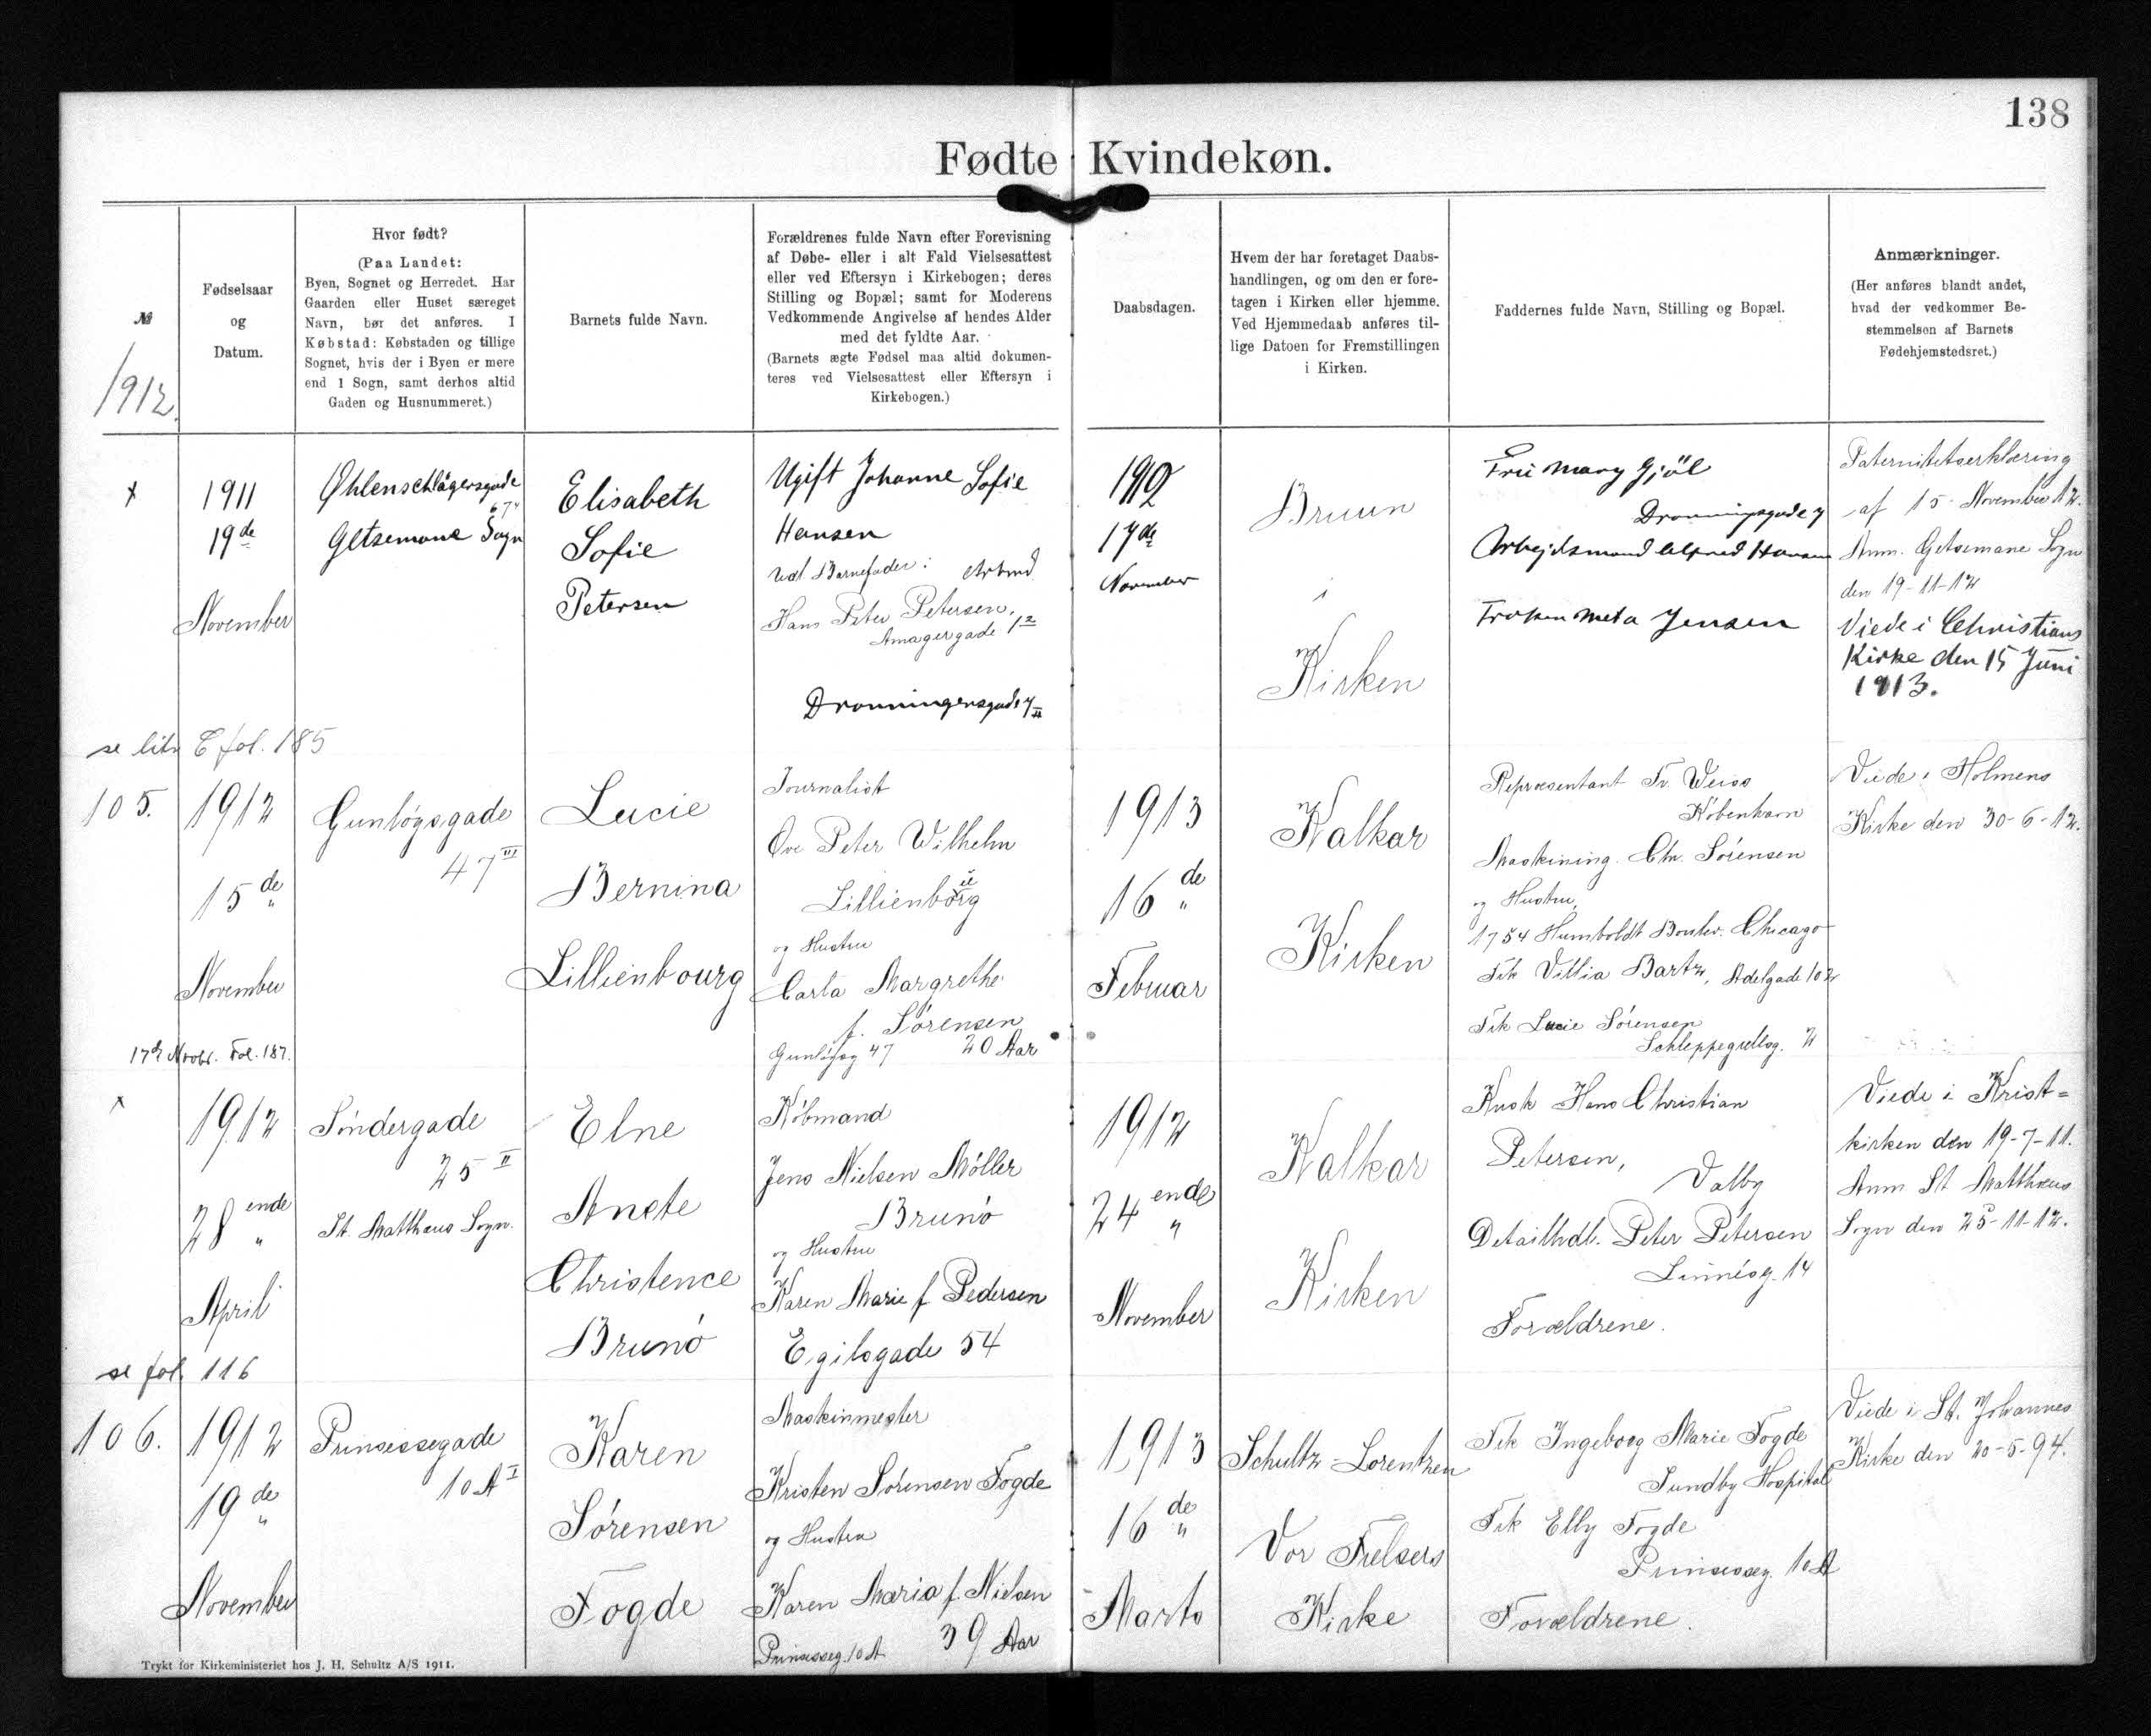 138
Fødte Kvindekøn.
№
1912.
Fødselsaar
og
Datum.
Hvor født?
(Paa Landet:
Byen, Sognet og Herredet. Har
Gaarden eller Huset særeget
Navn, bør det anføres. I
Købstad: Købstaden og tillige
Sognet, hvis der i Byen er mere
end 1 Sogn, samt derhos altid
Gaden og Husnummeret.)
Barnets fulde Navn.
Forældrenes fulde Navn efter Forevisning
af Døbe- eller i alt Fald Vielsesattest
eller ved Eftersyn i Kirkebogen; deres
Stilling og Bopæl; samt for Moderens
Vedkommende Angivelse af hendes Alder
med det fyldte Aar.
(Barnets ægte Fødsel maa altid dokumen-
teres ved Vielsesattest eller Eftersyn i
Kirkebogen.)
Daabsdagen.
Hvem der har foretaget Daabs-
handlingen, og om den er fore-
tagen i Kirken eller hjemme.
Ved Hjemmedaab anføres til-
lige Datoen for Fremstillingen
i Kirken.
Faddernes fulde Navn, Stilling og Bopæl.
Anmærkninger.
(Her anføres blandt andet,
hvad der vedkommer Be-
stemmelsen af Barnets
Fødehjemstedsret.)
x
1911
19de
November
Øhlenschlägersgade
Getsemane Sogn
Elisabeth
Sofie
Petersen
Ugift Johanne Sofie
Hansen
Udl Barnefader: Arbmd
Hans Peter Petersen,
Amagergade 12
Dronningensgade 7 II
1912
17de
November
Bruun
i
Kirken
Fru Mary Gjöl
Dronningsgade 7
Arbejdsmand Alfred Hansen
Frøken Meta Jensen
Paternitetserklæring
af 15 November 12.
Anm. Getsemane Sogn
den 19-11-12
Viede i Christians
Kirke den 15 Juni
1913.
se litr C fol. 185
105.
1912
15de
November
Gunløgsgade
47 III
Lucie
Bernina
Lillienbourg
Journalist
Ove Peter Wilhelm
Lillienborg
og Hustru
Carla Margrethe
f. Sørensen
Gunløgsg 47 20 Aar
1913
16de
Februar
Kalkar
Kirken
Repræsentant Fr. Weiss
København
Maskining. Chr. Sørensen
og Hustru,
1754 Humboldt Boulev. Chicago
Frk Villia Bartz, Adelgade 102
Frk Lucie Sørensen
Schleppegrellsg. 2
Viede i Holmens
Kirke den 30-6-12.
17de Novbr. Fol. 187.
x
1912
28ende
April
Søndergade
25 II
St. Matthæus Sogn.
Elne
Anete
Christence
Brunø
Købmand
Jens Nielsen Møller
Brunø
og Hustru
Karen Marie f Pedersen
Egilsgade 54
1912
24ende
November
Kalkar
Kirken
Kusk Hans Christian
Petersen,
Valby
Detailhdl. Peter Petersen
Linnésg. 14
Forældrene.
Viede i Krist=
kirken den 19-7-11.
Anm St Matthæus
Sogn den 25-11-12.
se fol. 116
106.
1912
19de
November
Prinsessegade
10 A I
Karen
Sørensen
Fogde
Maskinmester
Kristen Sørensen Fogde
og Hustru
Karen Maria f. Nielsen
Prinsesseg. 10 A 39 Aar
1913
16de
Marts
Schultz-Lorentzen
Vor Frelsers
Kirke
Frk Ingeborg Marie Fogde
Sundby Hospital
Frk Elly Fogde
Prinsesseg. 10 A
Forældrene.
Viede i St. Johannes
Kirke den 20-5-94.
Trykt for Kirkeministeriet hos J. H. Schultz A/S 1911.